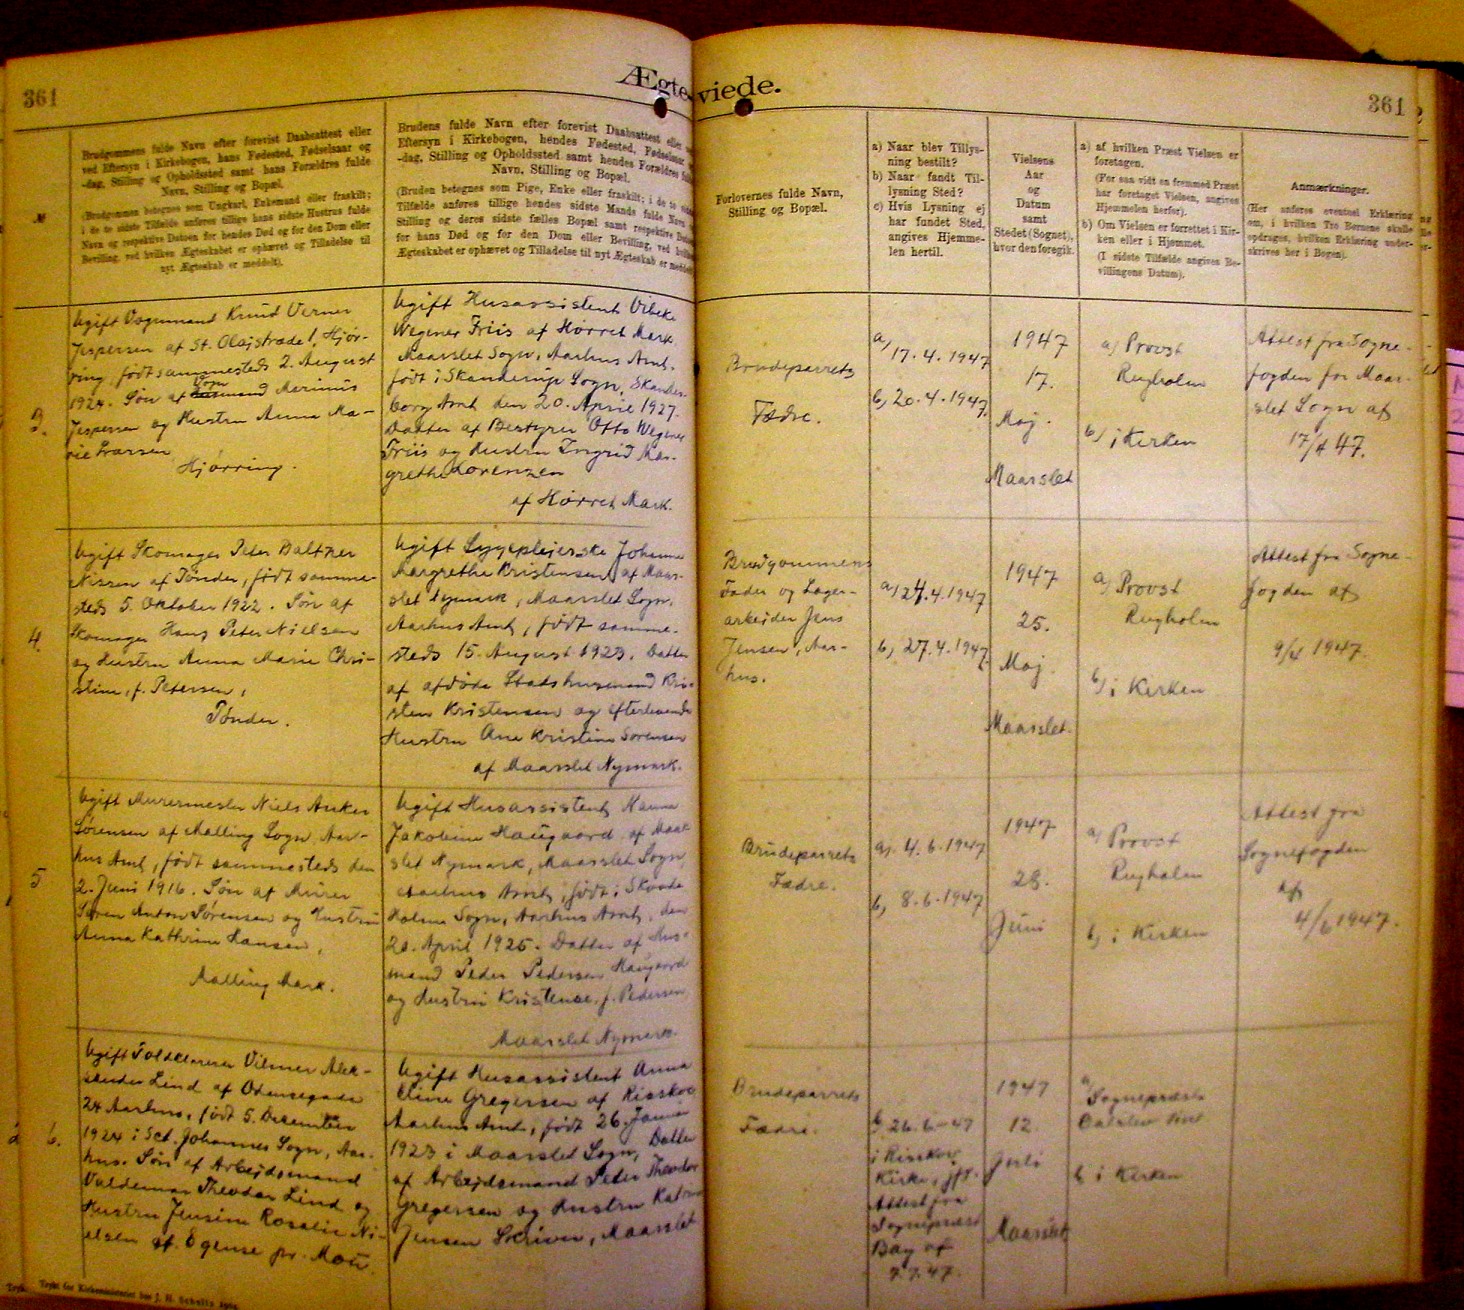 361
Ægteviede.
361
Brudgommens fulde Navn efter forevist Daabsattest eller
ved Eftersyn i Kirkebogen, hans Fødested, Fødselsaar og
-dag, Stilling og Opholdssted samt hans Forældres fulde
Navn, Stilling og Bopæl.
(Brudgommen betegnes som Ungkarl, Enkemand eller fraskilt;
i de to sidste Tilfælde anføres tillige hans sidste Hustrus fulde
Navn og respektive Datoen for hendes Død og for den Dom eller
Bevilling, ved hvilken Ægteskabet er ophævet og Tilladelse til
nyt Ægteskab er meddelt).
Brudens fulde Navn efter forevist Daabsattest eller
Eftersyn i Kirkebogen, hendes Fødested, Fødselsaar
-dag, Stilling og Opholdssted samt hendes Forældres
Navn, Stilling og Bopæl.
(Bruden betegnes som Pige, Enke eller fraskilt; i de to
Tilfælde anføres tillige hendes sidste Mands fulde Navn,
Stilling og deres sidste fælles Bopæl samt respektive
for hans Død og for den Dom eller Bevilling, ved
Ægteskabet er ophævet og Tilladelse til nyt Ægteskab er meddelt
Forlovernes fulde Navn,
Stilling og Bopæl.
a) Naar blev Tillys-
ning bestilt?
b) Naar fandt Til-
lysning Sted?
c) Hvis Lysning ej
har fundet Sted,
angives Hjemme-
len hertil.
Vielsens
Aar
og
Datum
samt
Stedet (Sognet),
hvor den foregik.
a) af hvilken Præst Vielsen er
foretagen.
(For saa vidt en fremmed Præst
har foretaget Vielsen, angives
Hjemmelen herfor).
b) Om Vielsen er forrettet i Kir-
ken eller i Hjemmet.
(I sidste Tilfælde angives Be-
villingens Datum).
Anmærkninger.
(Her anføres eventuel Erklæring
om, i hvilken Tro Børnene skulle
opdrages, hvilken Erklæring under-
skrives her i Bogen).
3.
Ugift Vognmand Knud Verner
Jespersen af St. Olajstræde 1, Hjør-
ring, født sammesteds 2. August
1924. Søn af Marinus
Jespersen og Hustru Anna Ma-
rie
Hjørring.
Ugift Husassistent Vibeke
Wegener Friis af Hørret Mark,
Maarslet Sogn, Aarhus Amt,
født i Skanderup Sogn, Skander-
borg Amt den 20. April 1927.
Datter af Bestyrer Otto Wegener
Friis og Hustru Ingrid Mar-
grethe Lorenzen
af Hørret Mark.
Brudeparrets
Fædre.
a, 17.4.1947
b, 20.4.1947.
1947
17.
Maj.
Maarslet
a) Provst
Rugholm
b) i Kirken
Attest fra Sogne-
fogden for Maar-
slet Sogn af
17/4 47.
4.
Ugift Skomager Peter Baltzer
Nissen af Tønder, født samme-
steds 5. Oktober 1922. Søn af
Skomager Hans Peter Nielsen
og Hustru Anna Marie Chri-
stine, f. Petersen,
Tønder.
Ugift Sygeplejerske Johanne
Margrethe Kristensen af Maar-
slet Nymark, Maarslet Sogn,
Aarhus Amt, født samme-
steds 15. August 1923. Datter
af afdøde Stadshusmand Kri-
sten Kristensen og efterlevende
Hustru Ane Kristine Sørensen
af Maarslet Nymark.
Brudgommens
Fader og Lager-
arbejder Jens
Jensen, Aar-
hus.
a, 24.4.1947
b, 27.4.1947.
1947
25.
Maj.
Maarslet.
a) Provst
Rugholm
b) i Kirken
Attest fra Sogne-
fogden af
9/4 1947.
5
Ugift Murermester Niels Anker
Sørensen af Malling Sogn, Aar-
hus Amt, født sammesteds den
2. Juni 1916. Søn af Murer
Søren Anton Sørensen og Hustru
Anna Kathrine Hansen,
Malling Mark.
Ugift Husassistent Hanna
Jakobine Haugaard af Maar-
slet Nymark, Maarslet Sogn,
Aarhus Amt, født i
Holme Sogn, Aarhus Amt, den
20. April 1925. Datter af Hus-
mand Peder Pedersen Haugaard
og Hustru Kristense, f. Pedersen,
Maarslet Nymark.
Brudeparrets
Fædre.
a, 4.6.1947
b, 8.6.1947
1947
28.
Juni
a) Provst
Rugholm
b) i Kirken
Attest fra
Sognefogden
af
4/6 1947.
6.
Ugift Toldelever Vilmer Alek-
sander Lind af Odensegade
24 Aarhus, født 5. December
1924 i Sct. Johannes Sogn, Aar-
hus. Søn af Arbejdsmand
Valdemar Theodor Lind og
Hustru Jensine Rosalie Ni-
elsen af Øgense pr. Mou.
Ugift Husassistent Anna
Eline Gregersen af Risskov
Aarhus Amt, født 26. Januar
1923 i Maarslet Sogn, Datter
af Arbejdsmand Peter Theodor
Gregersen og Hustru Katrine
Jensen Skriver, Maarslet
Brudeparrets
Fædre.
b, 26.6-47
i Risskov
Kirke, jfr.
Attest fra
Sognepræst
Bay af
7.7.47.
1947
12.
Juli
Maarslet
a) Sognepræst
b i Kirken
Trykt for Kirkeministeriet hos J. H. Schultz